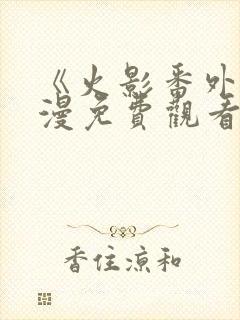 《火影番外
漫免費觀看
香住涼和